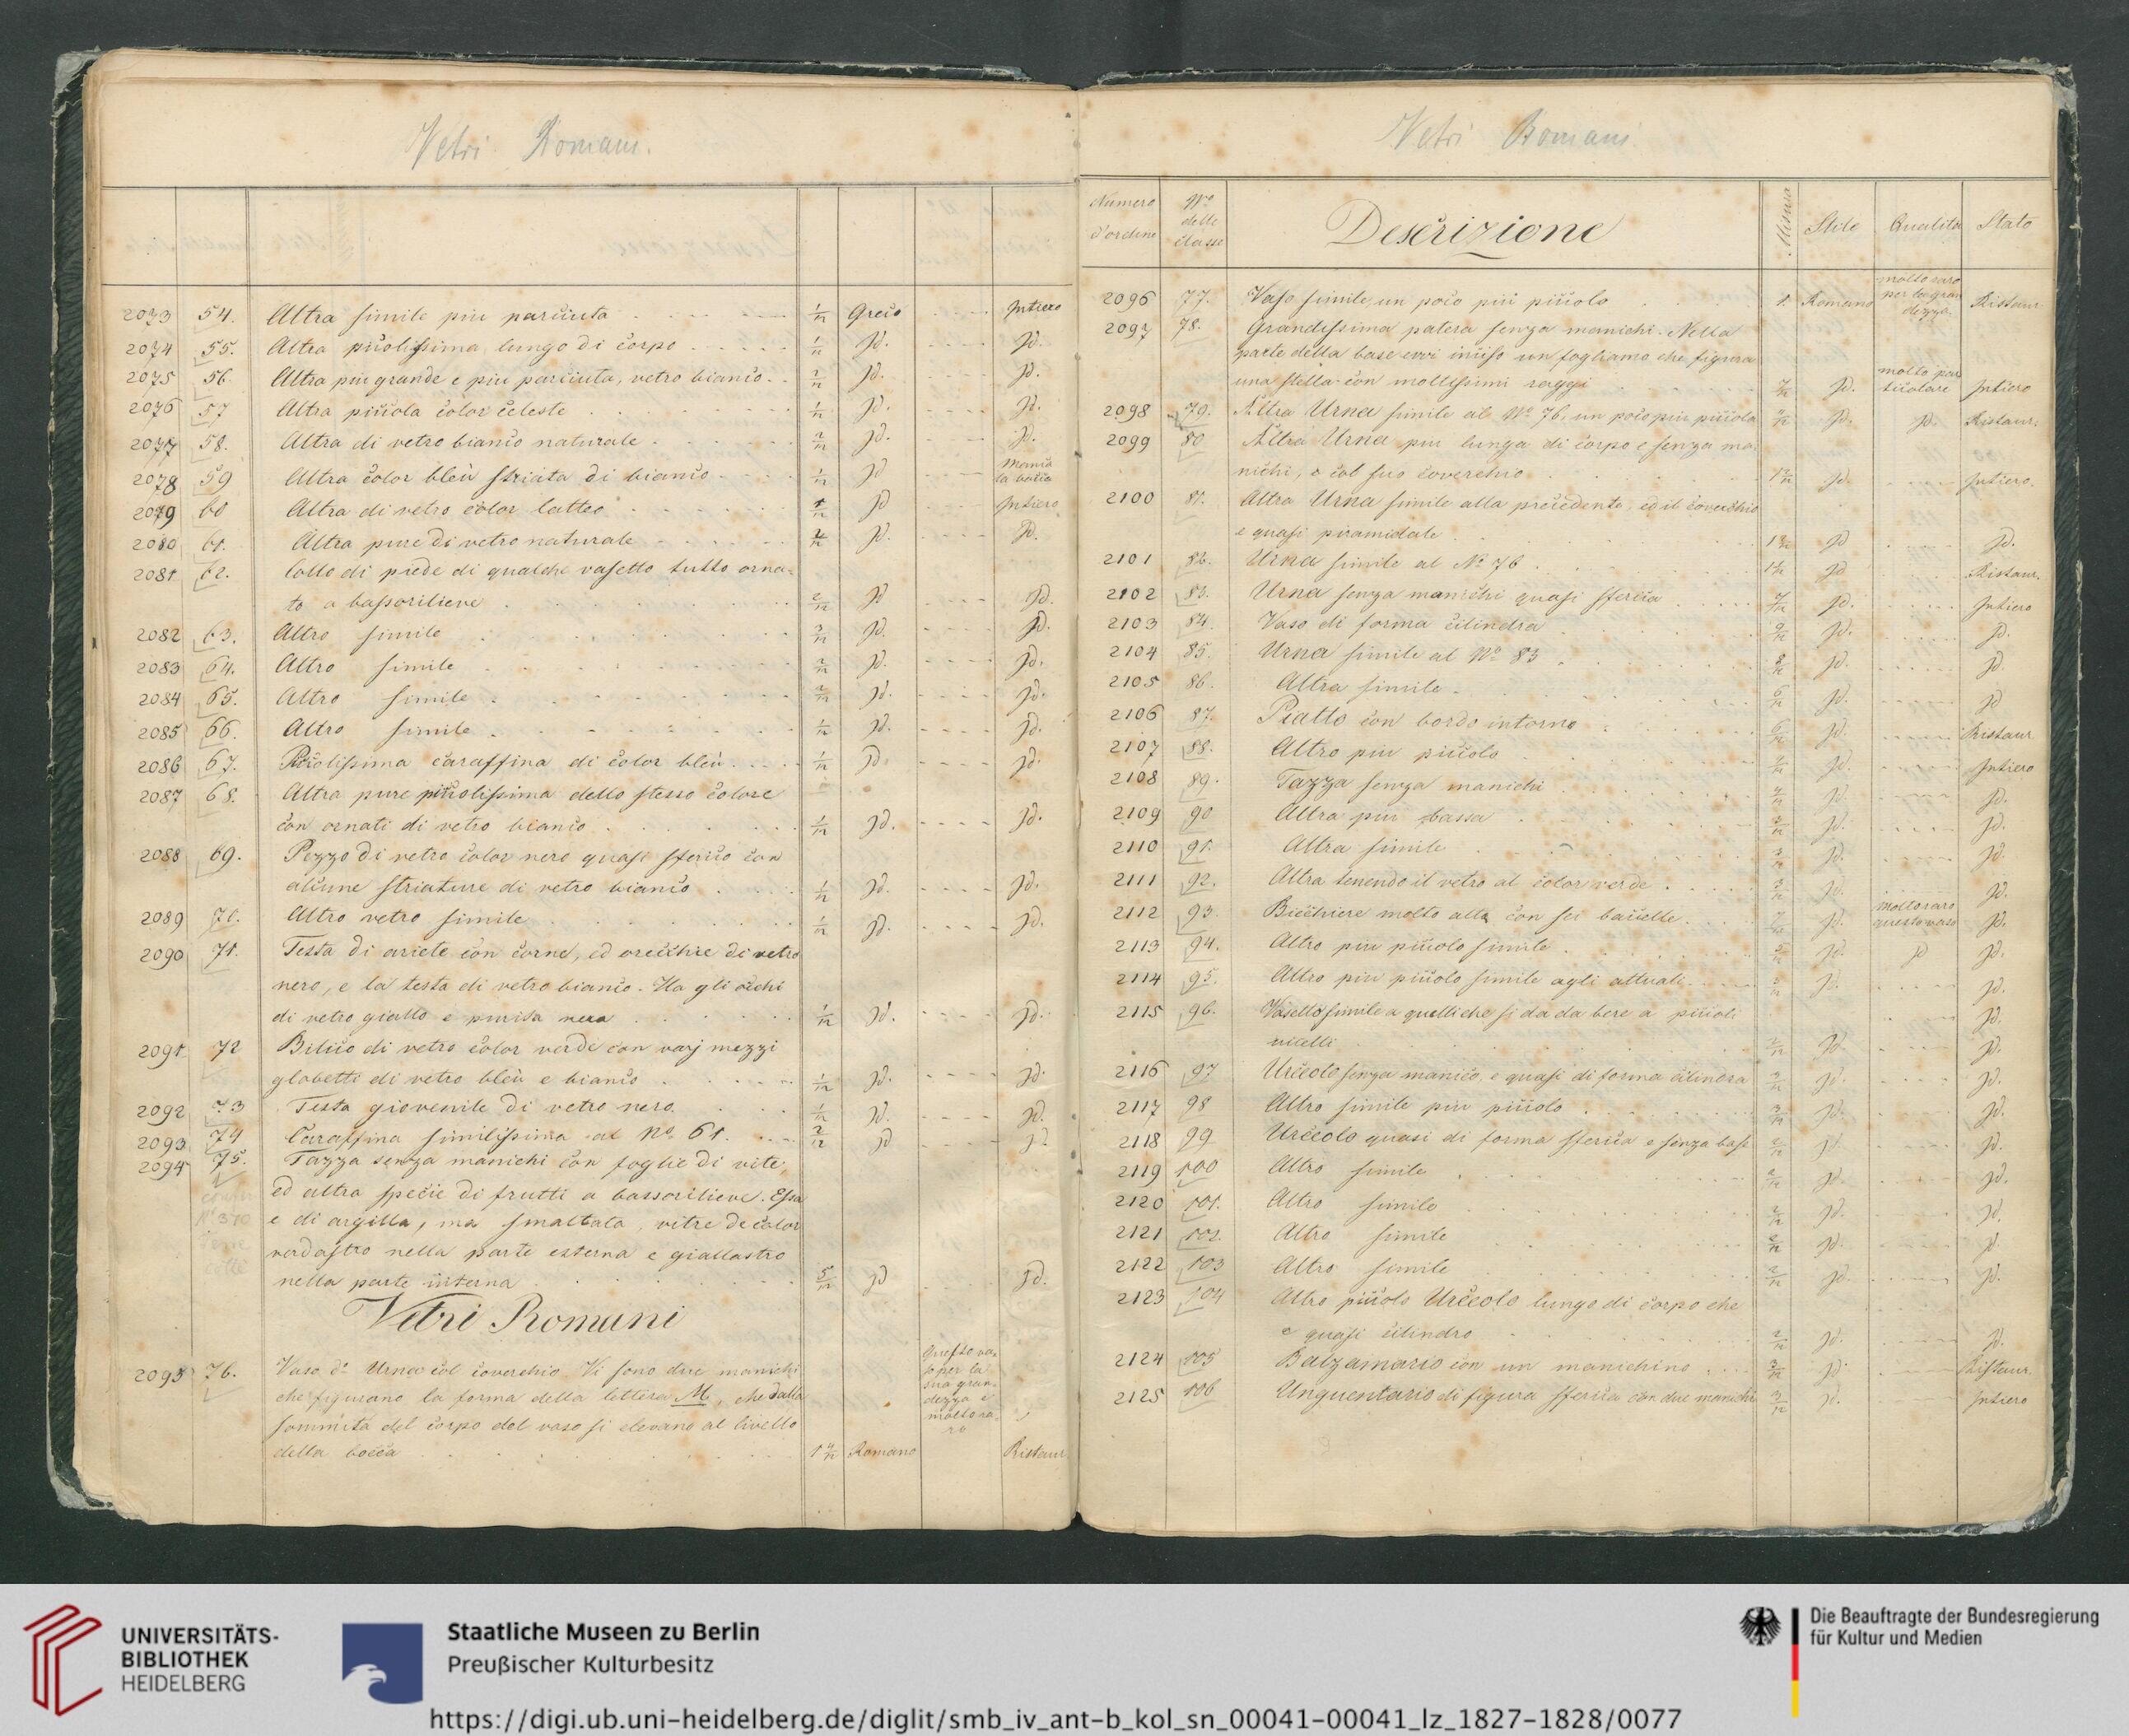 Vetri Romani.
2073 54. Altra simile piu panciuta 1/12 Greco Intiero
2074 55. Altra picolissima lungo di corpo 1/12 Id. Id.
2075 56. Altra piu grande e piu panciuta, vetro bianco 2/12 Id. Id.
2076 57 Altra piccola color celeste 1/12 Id. Id.
2077 58. Altra di vetro bianco naturale 2/12 Id. Id.
2078 59 Altra color bleù striata di bianco 1/12 Id manca la bocca
2079 60 Altra di vetro color latteo 1/12 Id Intiero
2080 61. Altra pure di vetro naturale 2/12 Id. Id.
2081 62. Collo di piede di qualche vasetto tutto orna-
to a bassorilieve 2/12 Id Id.
2082 63. Altro simile 3/12 Id. Id.
2083 64. Altro simile 2/12 Id. Id.
2084 65. Altro simile 2/12 Id. Id.
2085 66. Altro simile 1/12 Id. Id.
2086 67. Picolissima caraffina di color bleù 1/12 Id. Id.
2087 68. Altra pure picolissima dello stesso colore
con ornati di vetro bianco 1/12 Id. Id.
2088 69. Pezzo di vetro color nero quasi sferico con
alcune striature di vetro bianco 1/12 Id. Id.
2089 70. Altro vetro simile 1/12 Id. Id.
2090 71. Testa di ariete con corne, ed orecchie di vetro
nero, e la testa di vetro bianco. Ha gli occhi
di vetro giallo e pupilla nera 1/12 Id. Id.
2091 72 Bilico di vetro color verde con varj mezzi
globetti di vetro bleù e bianco 1/12 Id. Id.
2092 73 Testa giovenile di vetro nero 1/12 Id. Id.
2093 74 Caraffina similissima al No. 61. 2/12 Id Id
2094 75. Tazza senza manichi con foglie di vite,
ed altra specie di frutti a bassorilieve. Essa
e di argilla, ma smaltata, vitre de color
verdastro nella parte esterna e giallastro
nella parte interna 5/12 Id Id.
Vetri Romani
2095 76. Vaso do. Urna col coverchio. Vi sono due manichi
che figurano la forma della lettera M, che dalla
sommità del corpo del vaso si elevano al livello
della bocca 1 4/12 Romano Questo va-
so per la
sua gran-
dezza e
molto ra-
ro Ristaur.
Vetri Romani
Numero d'ordine No delle classe Descrizione Misura Stile Qualità Stato
2096 77. Vaso simile un poco piú piccolo 1. Romano molto raro per la gran dezza Ristaur
2097 78. Grandissima patera senza manichi. Nella
parte della base evvi inciso un fogliame che figura
una stella con moltissimi raggi 7/12 Id. molto par ticolare Intiero
2098 79. Altra Urna simile al No 76. un poco piu piccola Id. Id. Ristaur.
2099 80 Altra Urna piu lunga di corpo e senza ma-
nichi, e col suo coverchio Id. Intiero.
2100 81. Altra Urna simile alla precedente, ed il coverchio
e quasi piramidale Id Id.
2101 82. Urna simile al No 76 Id Ristaur.
2102 83. Urna senza manichi quasi sferica 7/12 Id. Intiero
2103 84. Vaso di forma cilindra 9/12 Id. Id.
2104 85. Urna simile al No 83 8/12 Id. Id.
2105 86. Altra simile 6/12 Id. Id
2106 87. Piatto con bordo intorno 6/12 Id. Ristaur
2107 88. Altro piu piccolo Id. Intiero
2108 89. Tazza senza manichi Id. Id.
2109 90 Altra piu bassa Id. Id.
2110 91. Altra simile 3/12 Id. Id.
2111 92. Altra tenendo il vetro al color verde 3/12 Id. Id.
2112 93. Bicchiere molto alto con sei baccelle Id. molto raro questo vaso Id.
2113 94. Altro piu piccolo simile Id. Id Id.
2114 95. Altro piu piccolo simile agli attuali Id. Id.
2115 96. Vasetto simile a quelli che si da da bere a piccoli Id.
uccelli Id. Id.
2116 97 Urceolo senza manico, e quasi di forma cilindra 3/12 Id. Id.
2117 98 Altro simile piu piccolo 3/12 Id. Id.
2118 99 Urceolo quasi di forma sferica e senza base 2/12 Id. Id.
2119 100 Altro simile 2/12 Id. Id.
2120 101. Altro simile 2/12 Id. Id.
2121 102. Altro simile 2/12 Id. Id
2122 103 Altro simile 2/12 Id. Id.
2123 104 Altro piccolo Urceolo lungo di corpo che
e quasi cilindro 2/12 Id. Id.
2124 105 Balzamario con un manichino 3/12 Id. Ristaur.
2125 106 Unguentario di figura sferica con due manichi 3/12 Id. Intiero
UNIVERSITÄTS-
BIBLIOTHEK
HEIDELBERG
Staatliche Museen zu Berlin
Preußischer Kulturbesitz
Die Beauftragte der Bundesregierung
für Kultur und Medien
https://digi.ub.uni-heidelberg.de/diglit/smb_iv_ant-b_kol_sn_00041-00041_lz_1827-1828/0077